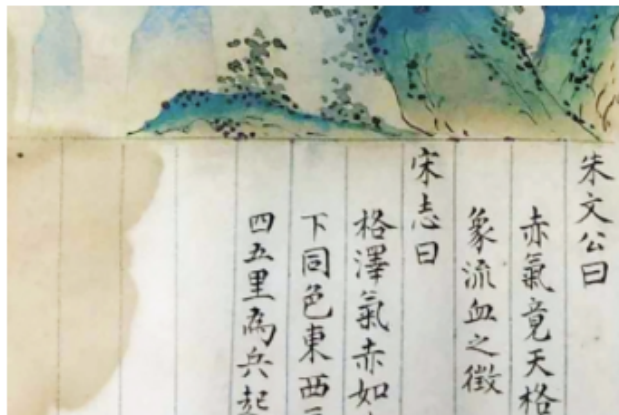 朱文公曰
赤氣竟天格
象流血之徵
宋志曰
格澤氣赤如
下同色東西
四五里爲兵起